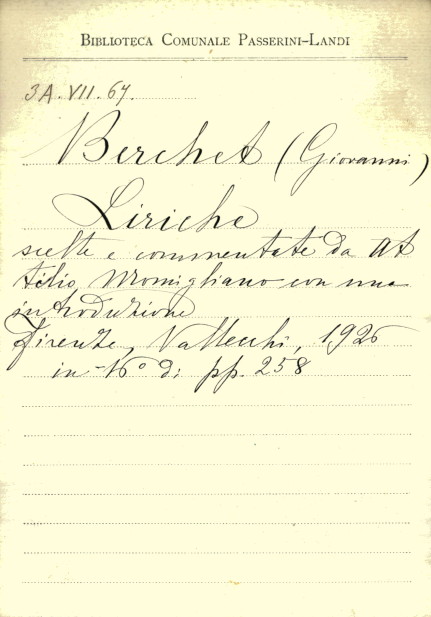 BIBLIOTECA COMUNALE PASSERINI-LANDI
3A. VII. 67.
Berchet (Giovanni)
Liriche
scelte e commentate da At
tilio Momigliano con una
introduzione
Firenze, Vallecchi, 1926
in-16° di pp. 258